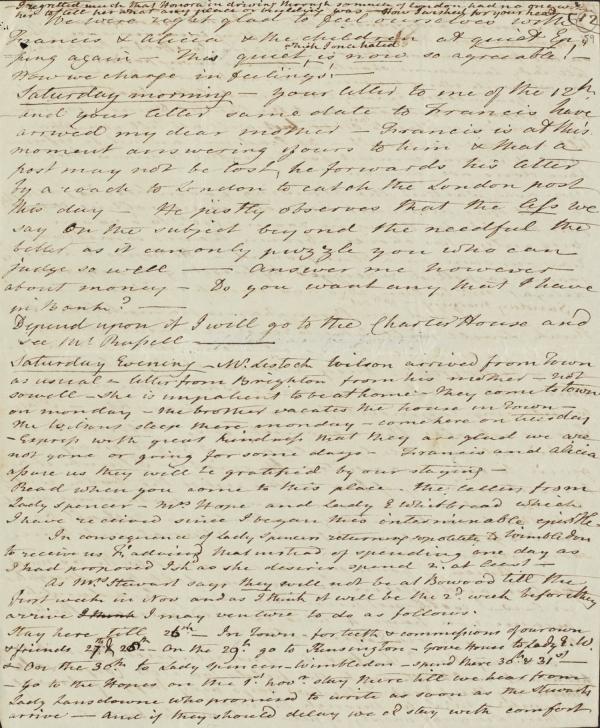 I regretted much that Honora in driving through so much of London had no
her to lose her
12
We were right glad to feel ourselves with
Francis & Alicia & the children at quiet Ep-
ping again - This quiet is now so agreeable! -
which I once hated
How we change in feelings! -
Saturday morning - your letter to me of the 12th
and your letter same date to Francis have
arrived my dear mother - Francis is at this
moment answering yours to him & that a
post may not be lost, he forwards his letter
by a coach to London to catch the London post
this day - He justly observes that the less we
say on the subject beyond the needful the
better as it can only puzzle you who can
judge so well - Answer me however
about money - Do you want any that I have
in Bank? -
Depend upon it I will go to the Charter House and
see Mr. Russell
Saturday Evening - Mr. Lestock Wilson arrived from Town
as usual a letter from Brighton from his mother - not
so well - she is impatient to be at home - They come to town
on monday - the brother vacates the house in Town -
The Wilsons sleep there monday - come here on tuesday
- Express with great kindness that they are glad we are
not gone or going for some days - Francis and Alicia
assure us they will be gratified by our staying -
Read when you come to this place the letters from
Lady Spencer - Mrs Hope and Lady E Whitbread which
I have received since I began this interminable epistle -
In consequence of Lady Spencer returning so late to Wimbledon
to receive us & advising that instead of spending one day as
I had proposed I shd. as she desires spend 2, at least -
As Mrs. Stewart says they will not be at Bowood till the
first week in Nov and as I think it will be the 2d. week before they
arrive I think I may venture to do as follows:
Stay here till 26th - In Town - for teeth & commissions of our own
& friends 27th & 28th - On the 29th go to Kensington - Grove House to Lady E. W.
& On the 30th to Lady Spencer - Wimbledon - spend there 30th & 31st
- go to the Hopes on the 1st Novr. stay there till we hear from
Lady Lansdowne who promised to write as soon as the Stewarts
arrive - and if they should delay we cd. stay with comfort